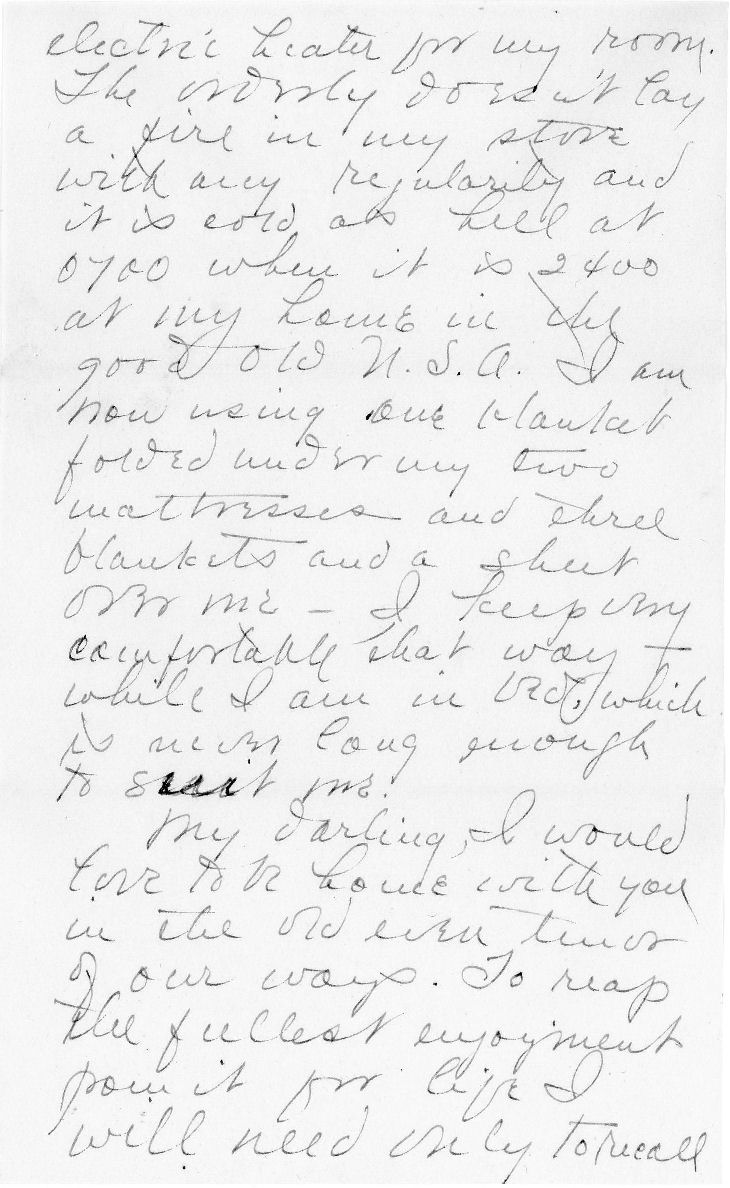 electric heater for my room.
The orderly doesn't lay
a fire in my stove
with any regularity and
it is cold as hell at
0700 when it is 2400
at my home in the
good old U.S.A. I am
now using one blanket
folded under my two
mattresses and three
blankets and a sheet
over me – I keep very
comfortable that way –
while I am in bed, which
is never long enough
to suit me.
My darling, I would
love to be home with you
in the old even tenor
of our ways. To reap
the fullest enjoyment
from it for life I
will need only to recall